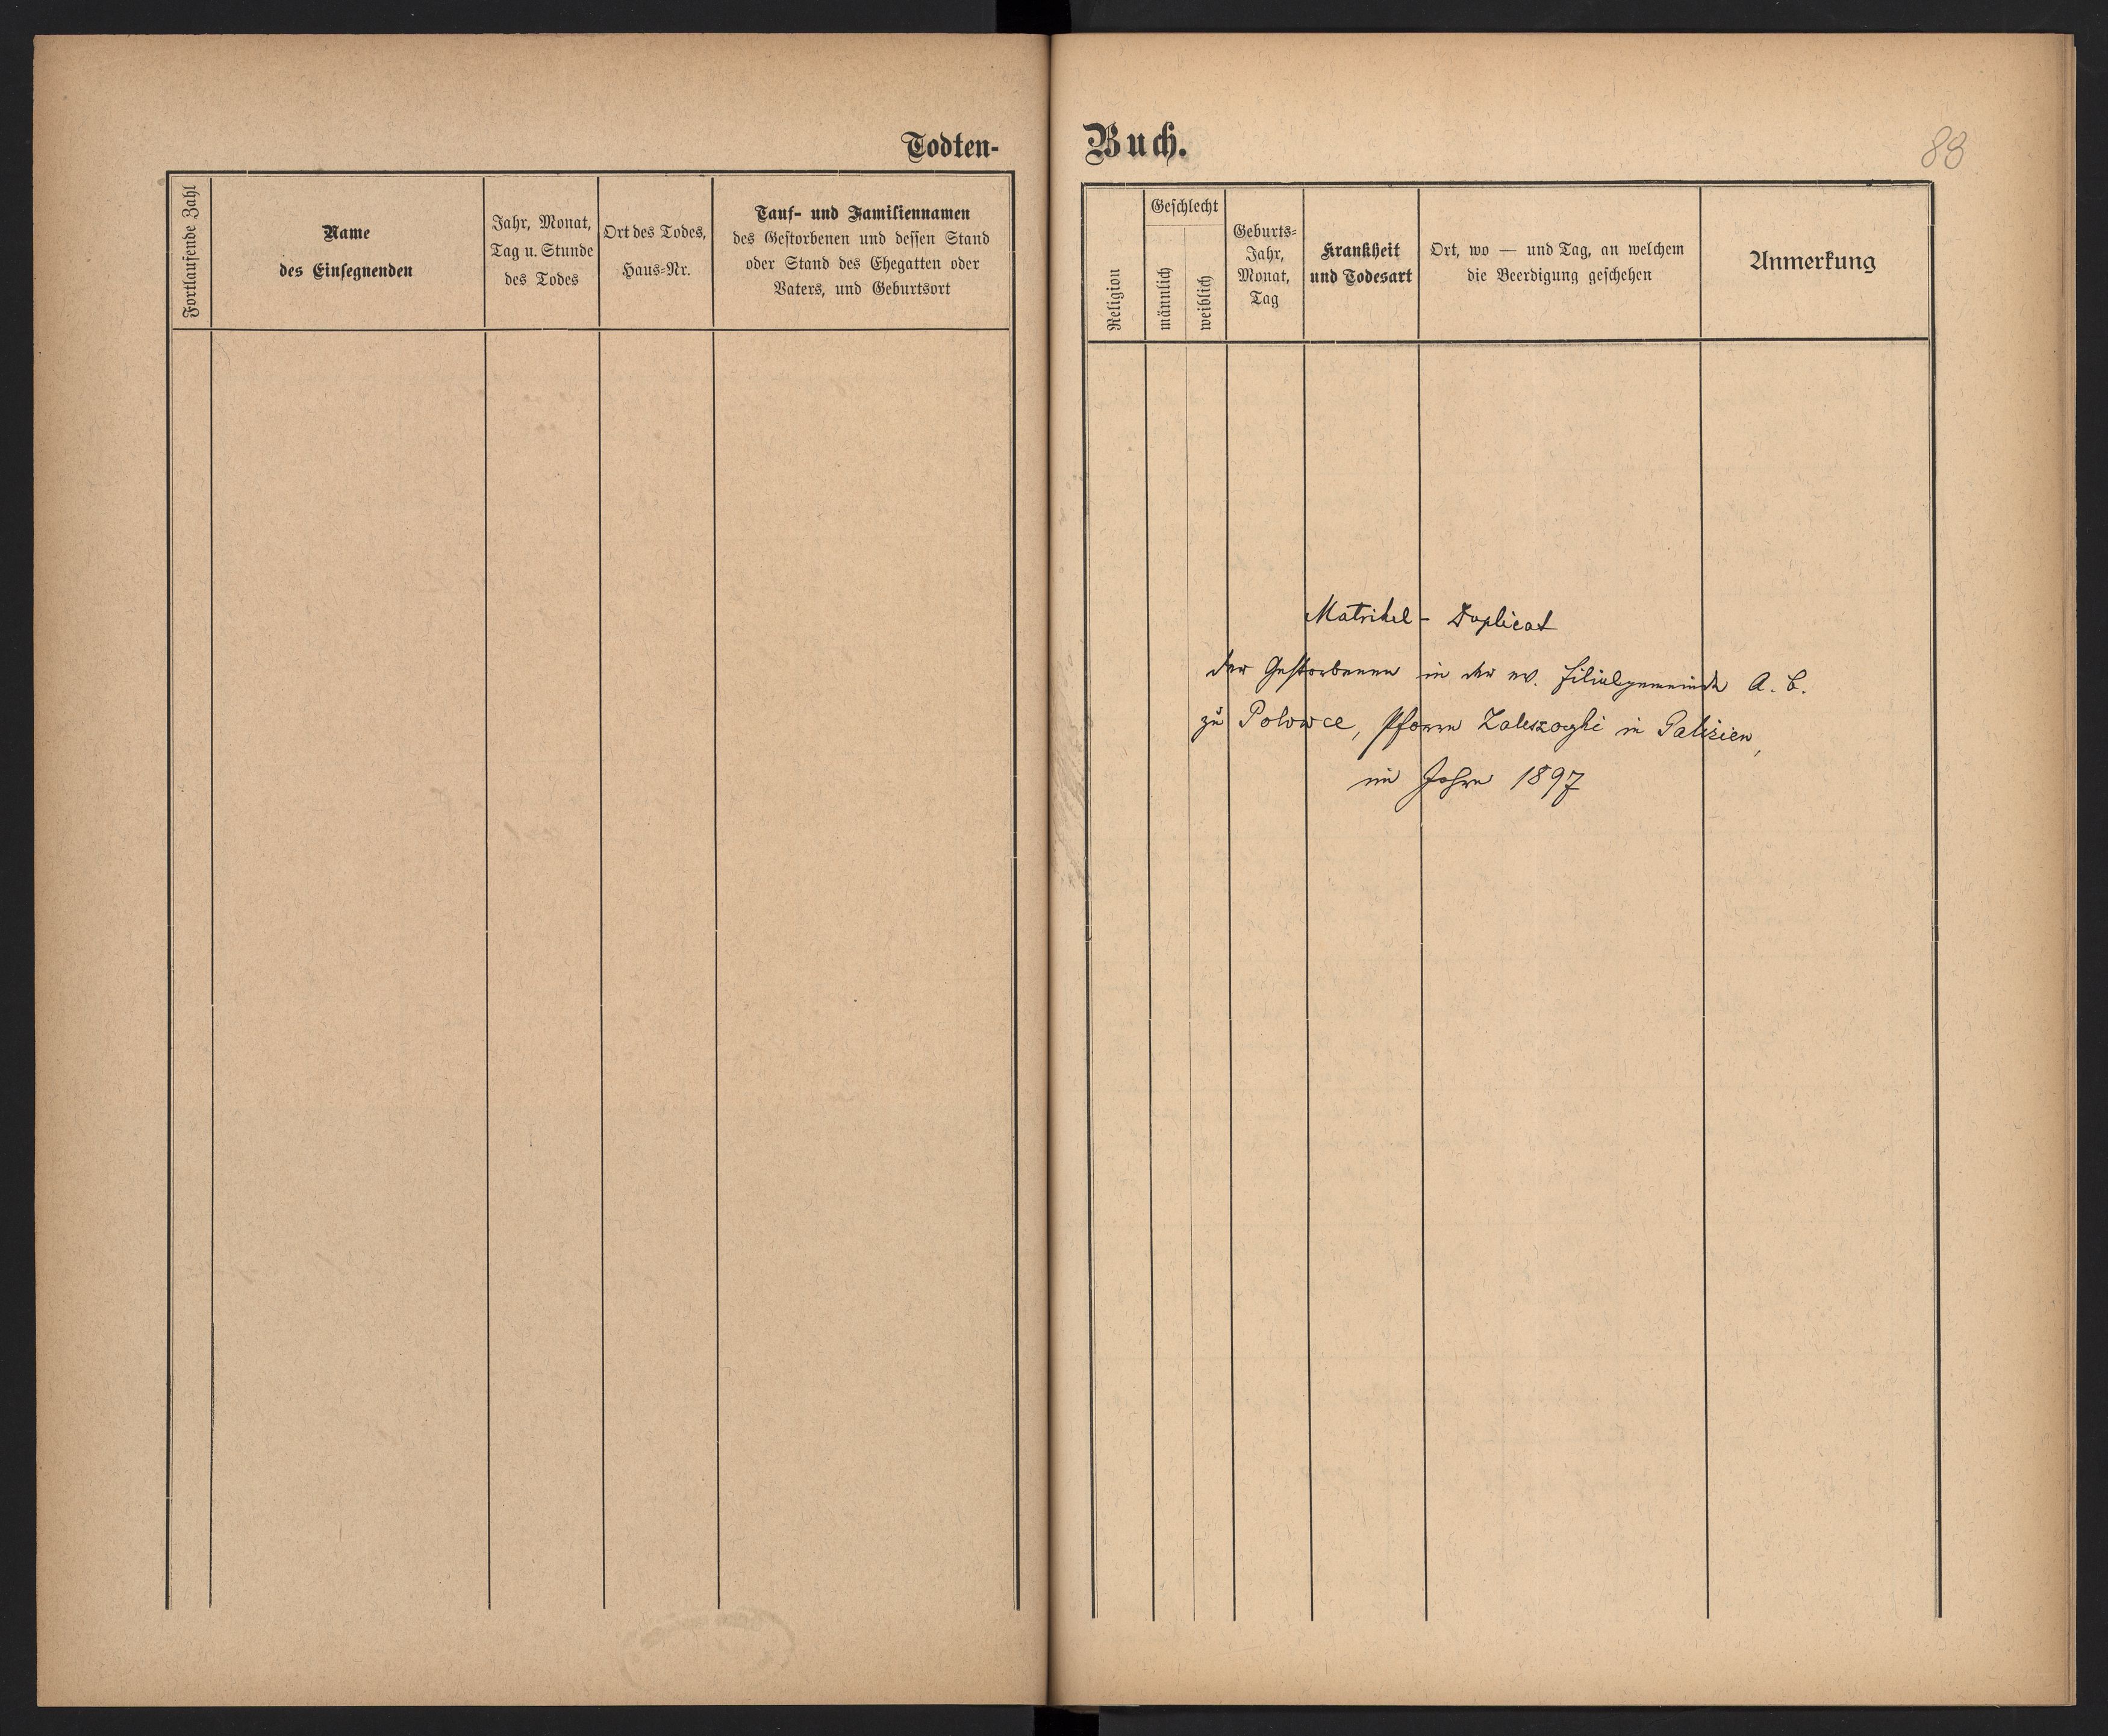 Todten-
Fortlaufende Zahl
Name
des Einsegnenden
Jahr, Monat,
Tag u. Stunde
des Todes
Ort des Todes,
Haus-Nr.
Tauf- und Familiennamen
des Gestorbenen und dessen Stand
oder Stand des Ehegatten oder
Vaters, und Geburtsort
Buch.
88
Religion
Geschlecht
männlich
weiblich
Geburts-
Jahr,
Monat,
Tag
Krankheit
und Todesart
Ort, wo — und Tag, an welchem
die Beerdigung geschehen
Anmerkung
Matrikel - Duplicat
der Gestorbenen in der ev. Filialgemeinde A. C.
zu Polowce, Pfarre Zaleszczyki in Galizien,
im Jahre 1897